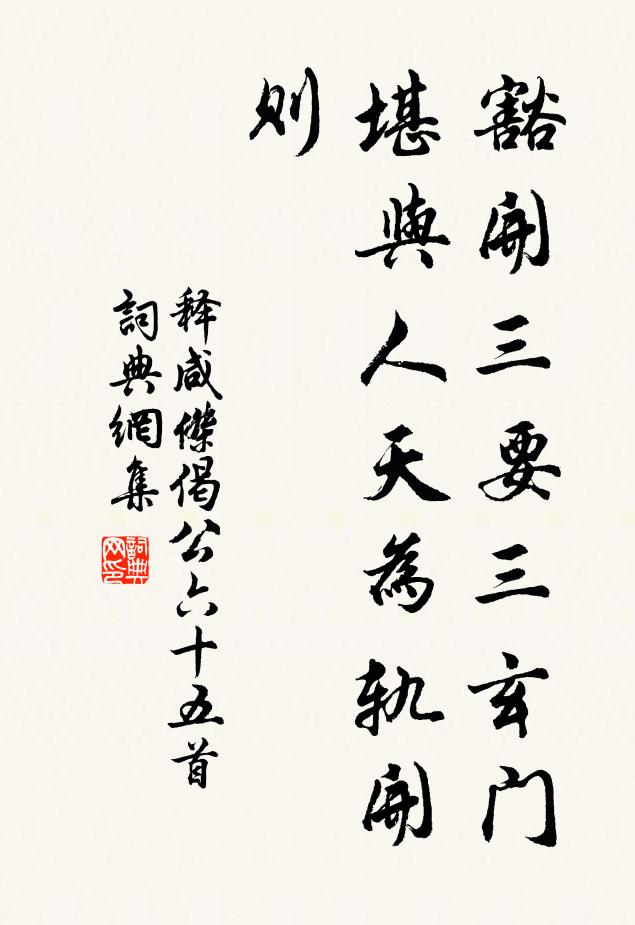 豁開三要三玄門
堪與人天為軌開
則
释咸傑偈公六十五首
詞典網集
詞典網印